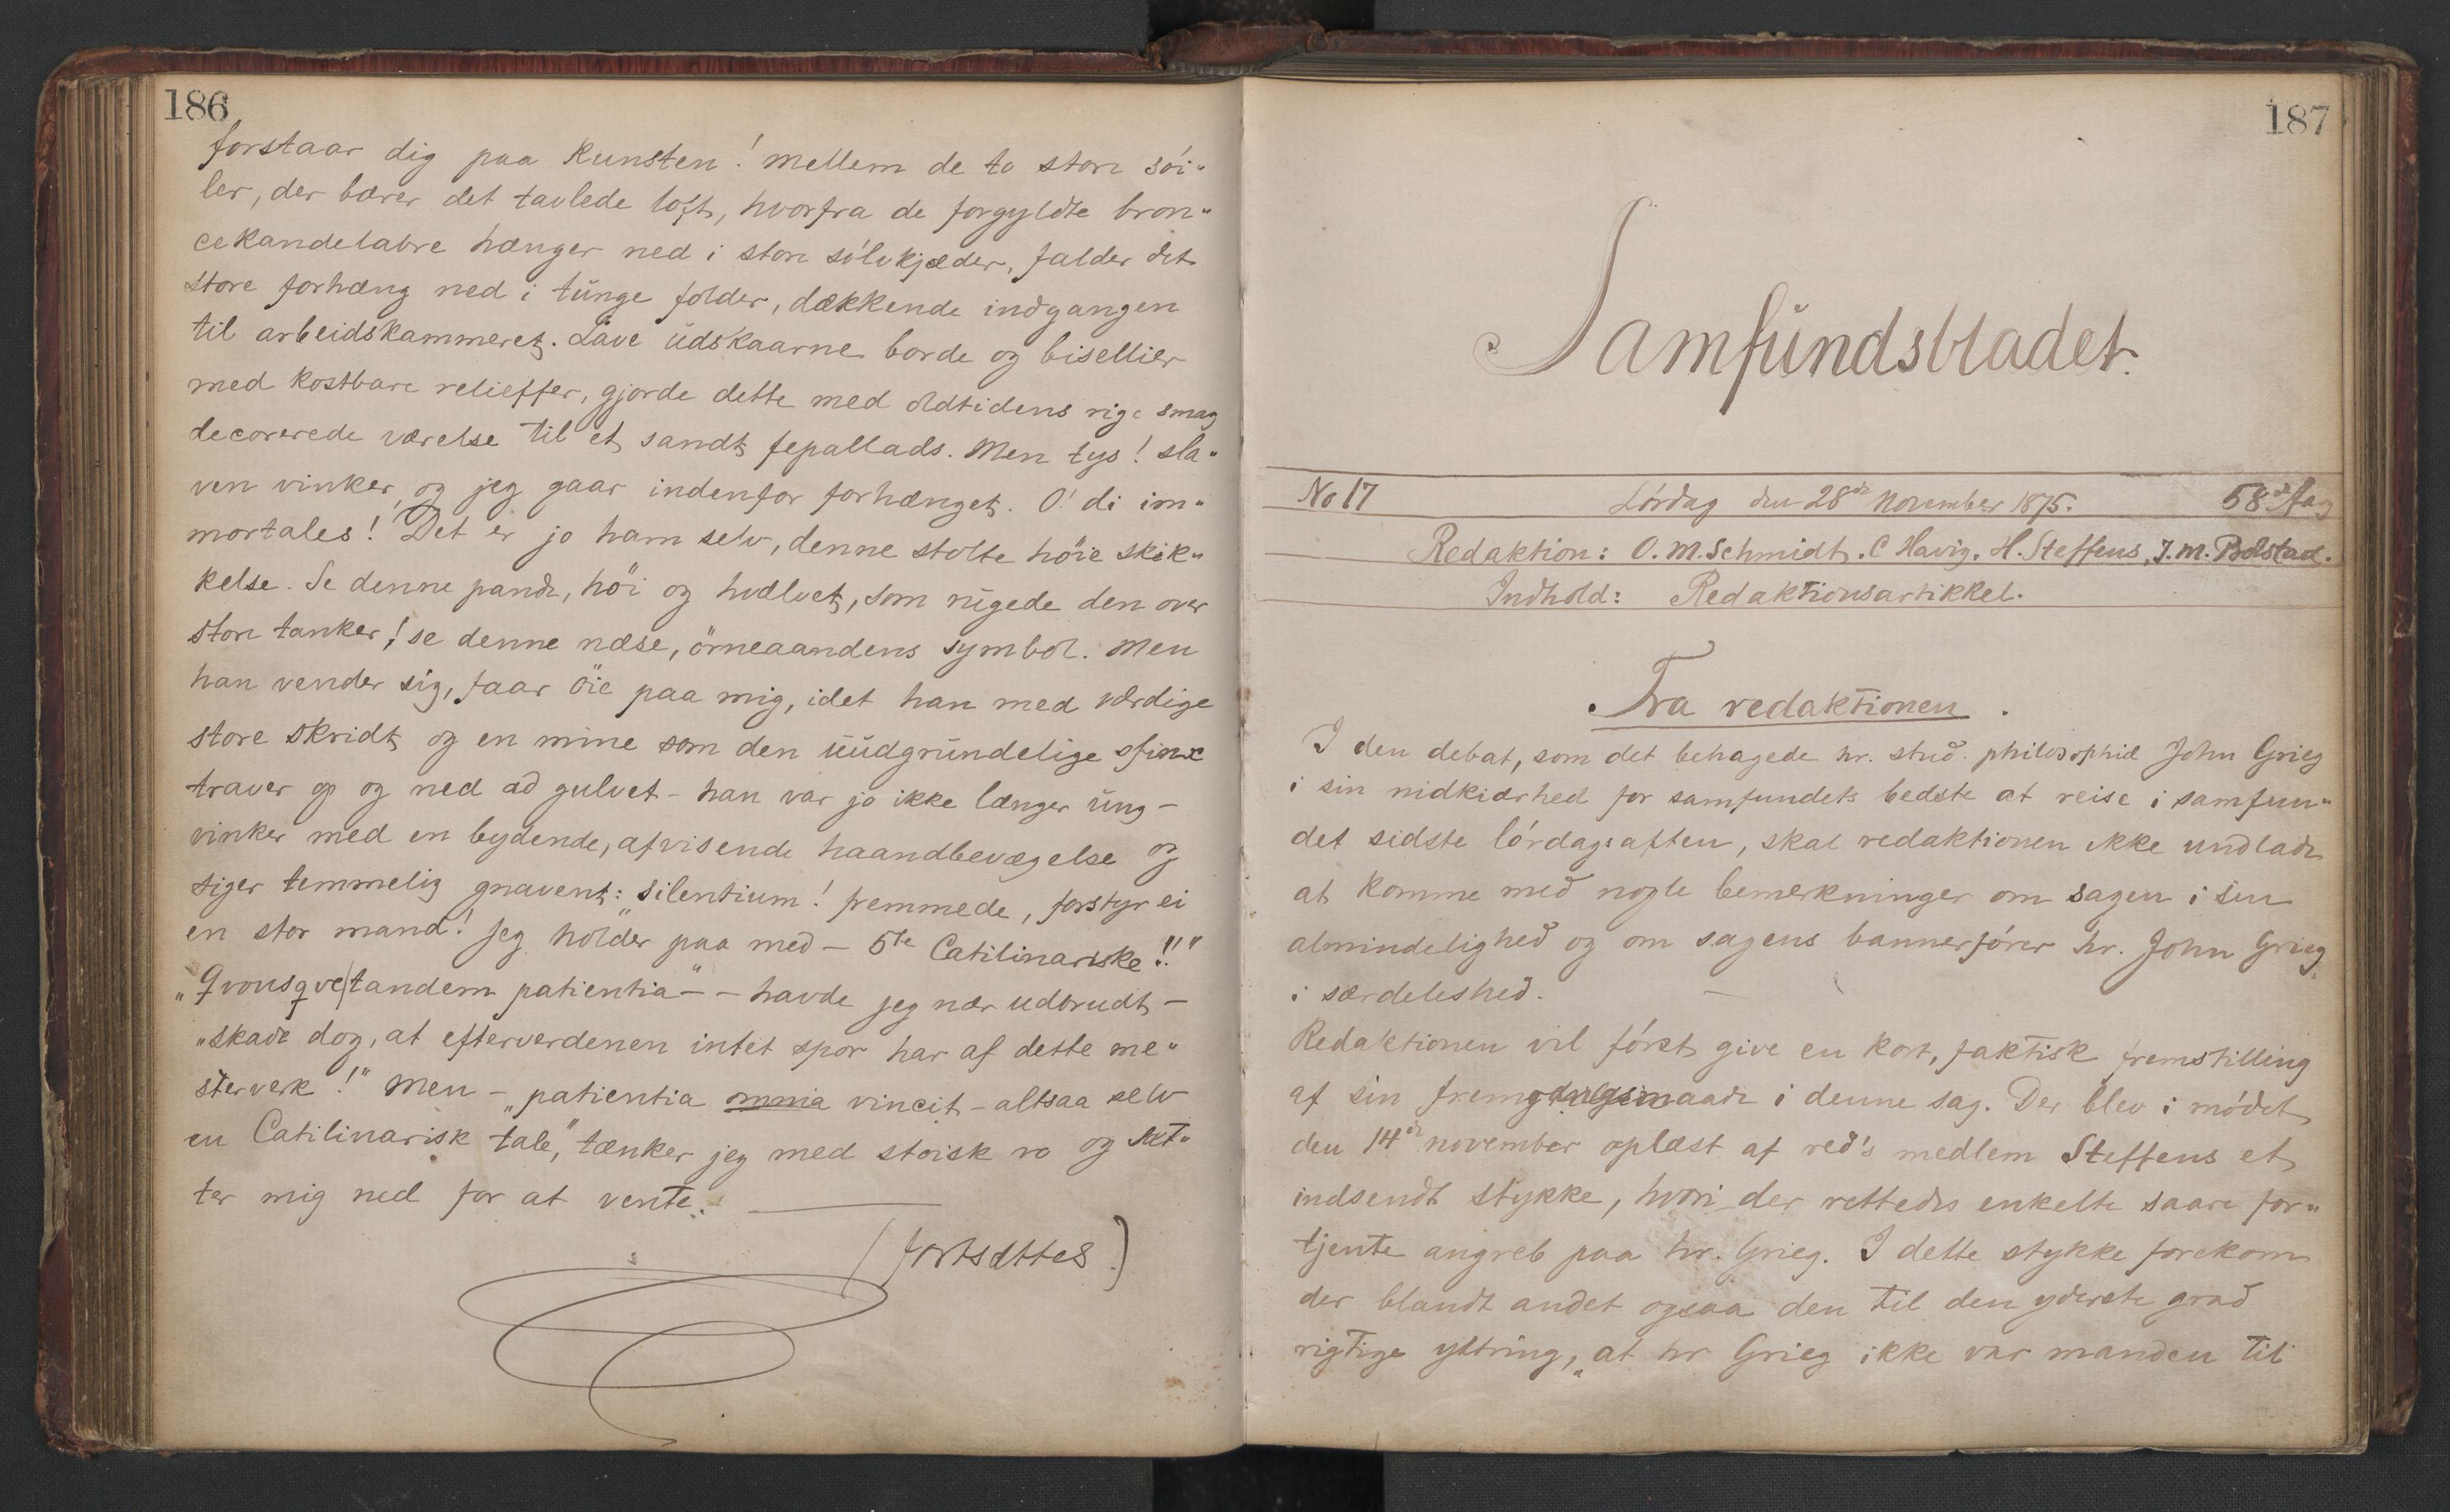 186
forstaar dig paa kunsten! mellem de to store söi„
ler, der bærer det tavlede loft, hvorfra de forgyldte bron„
cekandelabre hænger ned i store sölvkjæder, falder det
store forhæng ned i tunge folder, dækkende indgangen
til arbeidskammeret. Lave udskaarne borde og bisellier
med kostbare relieffer, gjorde dette med oldtidens rige smag
decorerede værelse til et sandt fepallads. Men tys! sla„
ven vinker, og jeg gaar indenfor forhænget. O! di im„
mortales! Det er jo ham selv, denne stolte höie skik„
kelse. Se denne pande, höi og hvælvet, som rugede den over
store tanker! se denne næse, örneaandens symbol. Men
han vender sig, faar öie paa mig, idet han med værdige
store skridt og en mine som den uudgrundelige sfinx
traver op og ned ad gulvet – han var jo ikke længer ung –
vinker med en bydende, afvisende haandbevægelse og
siger temmelig gnavent: silentium! fremmede, forstyr ei
en stor mand! jeg holder paa med – 5te Catilinariske!!"
„Qvousqve tandem patientia" – – havde jeg nær udbrudt –
„skade dog, at efterverdenen intet spor har af dette me„
sterverk!" Men – „patientia omnia vincit – altsaa selv
en Catilinarisk tale," tænker jeg med stoisk ro og sæt„
ter mig ned for at vente. ——
(fortsættes)
187
Samfundsbladet.
No 17 Lördag den 28de November 1875. 58de Aag
Redaktion: O. M. Schmidt. C Havig. H. Steffens, J. M. Bolstad.
Indhold: Redaktionsartikkel.
Fra redaktionen.
I den debat, som det behagede hr. stud. philosophiæ John Grieg
i sin nidkiærhed for samfundets bedste at reise i samfun„
det sidste lördagsaften, skal redaktionen ikke undlade
at komme med nogle bemerkninger om sagen i sin
almindelighed og om sagens bannerförer hr. John Grieg
i særdeleshed. —
Redaktionen vil först give en kort, faktisk fremstilling
af sin fremgangsmaade i denne sag. Der blev i mödet
den 14de november oplæst af red's medlem Steffens et
indsendt stykke, hvori der rettedes enkelte saare for„
tjente angreb paa hr. Grieg. I dette stykke forekom
der blandt andet ogsaa den til den yderste grad
rigtige yttring, „at hr Grieg ikke var manden til